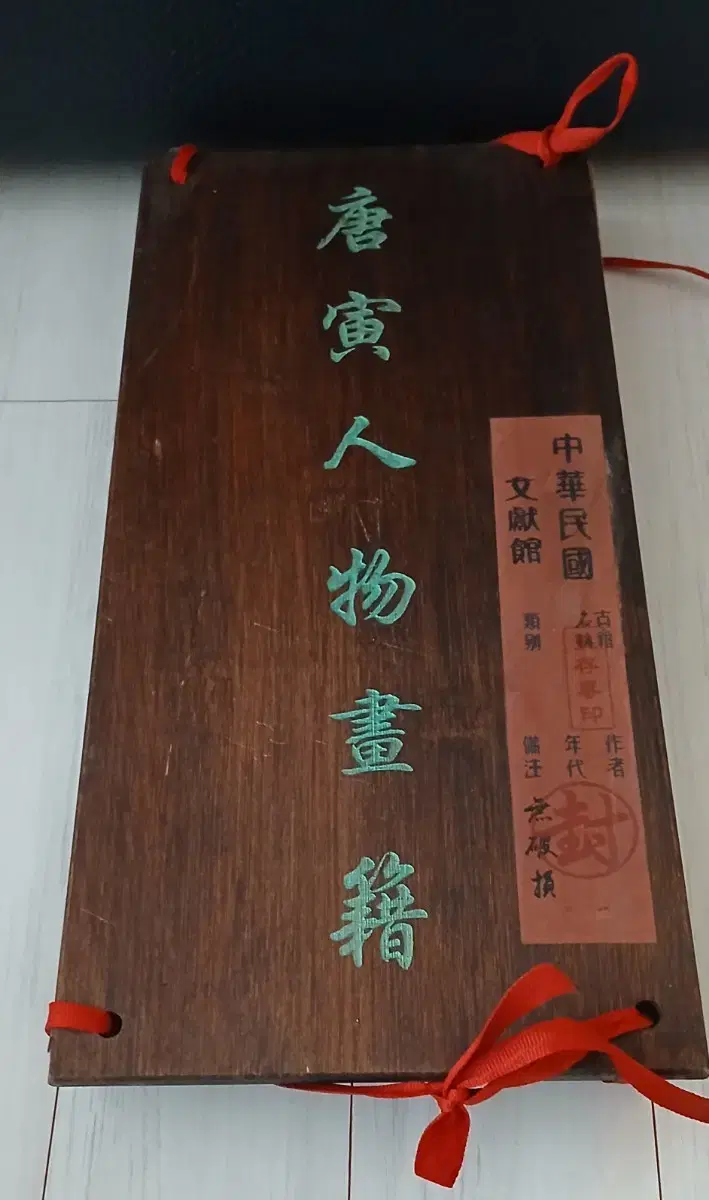 唐寅人物畫籍
中華民國
文獻館
古籍
類別
存專印
作者
年代
備注
無破損
封